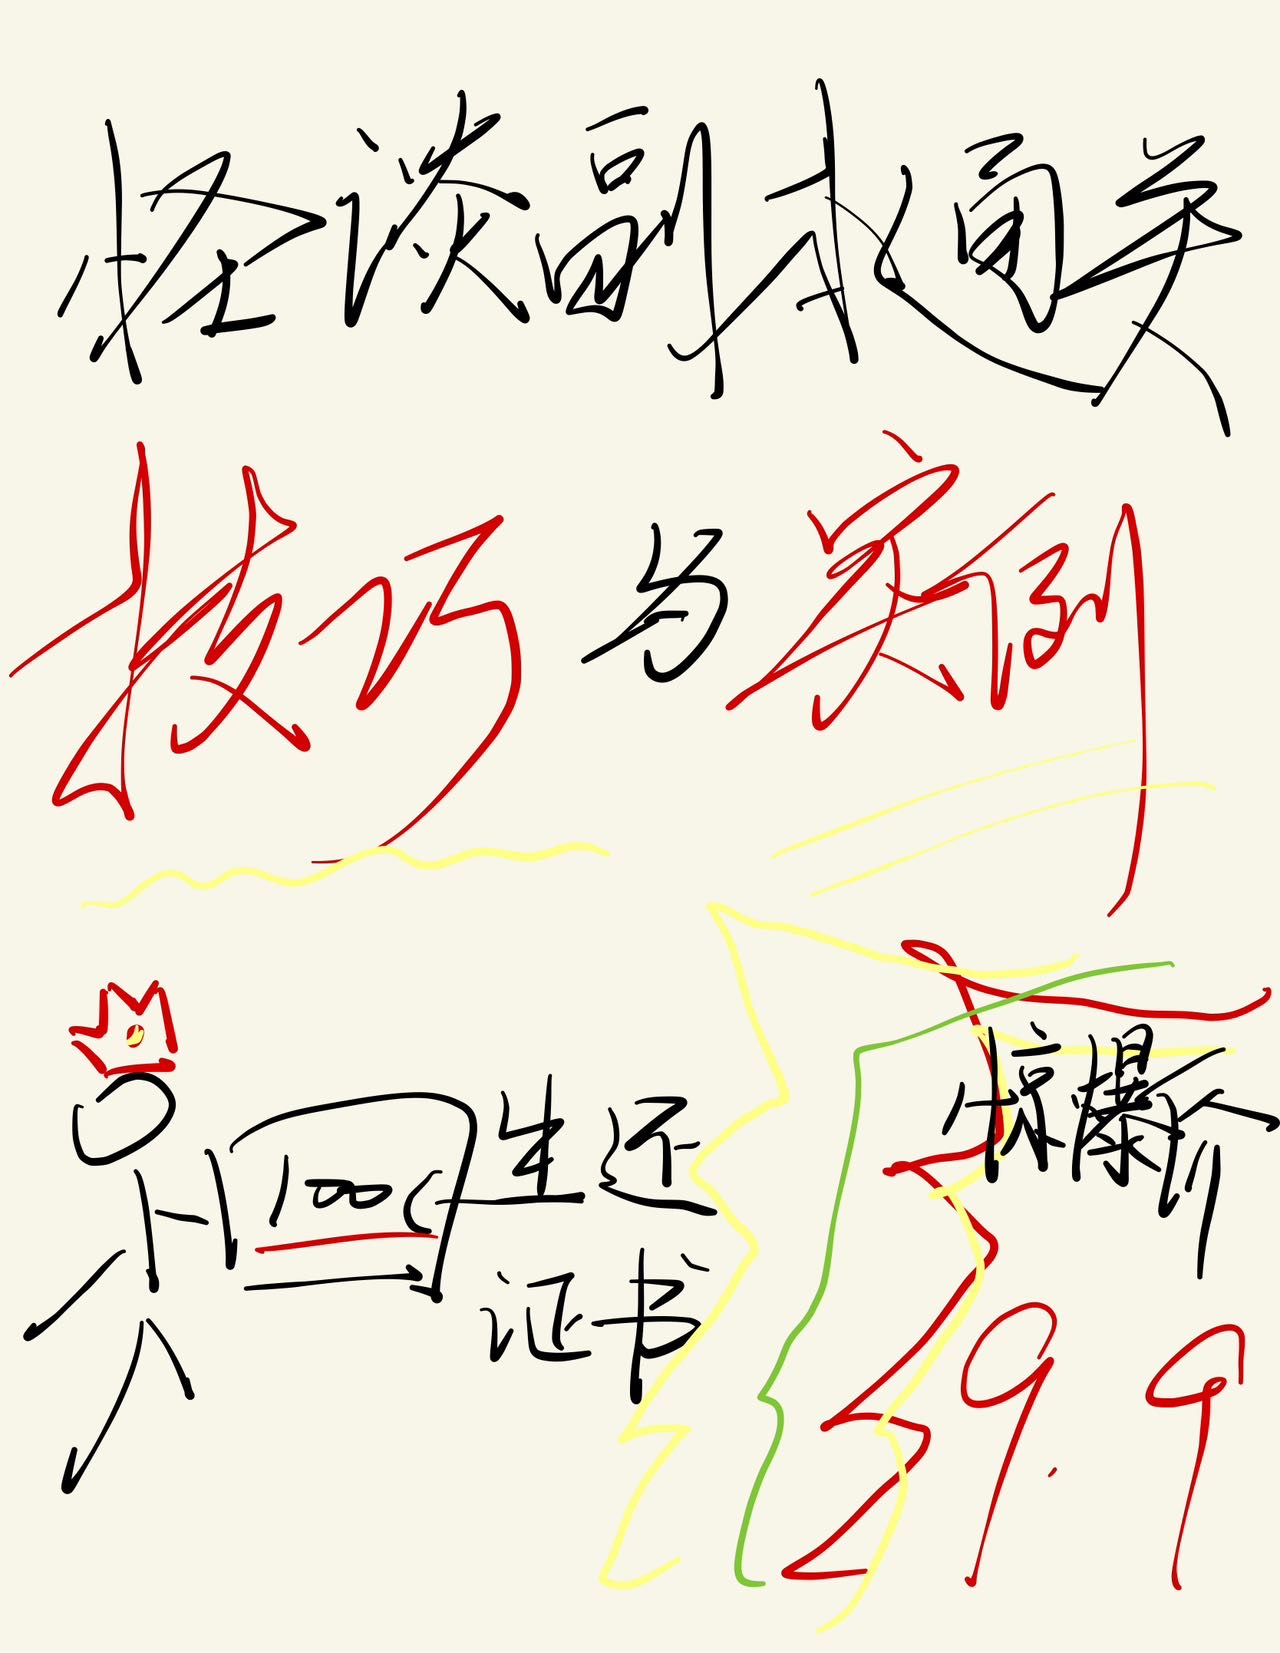 怪谈副本通关
技巧与实例
100
生还
证书
惊爆价
9.9